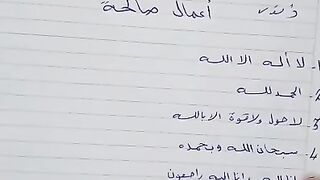 أعمال صالحة
1- لا أله الا الله
2- الحمد لله
3- لا حول ولا قوة الا بالله
4- سبحان الله وبحمده
انا لله وانا اليه راجعون